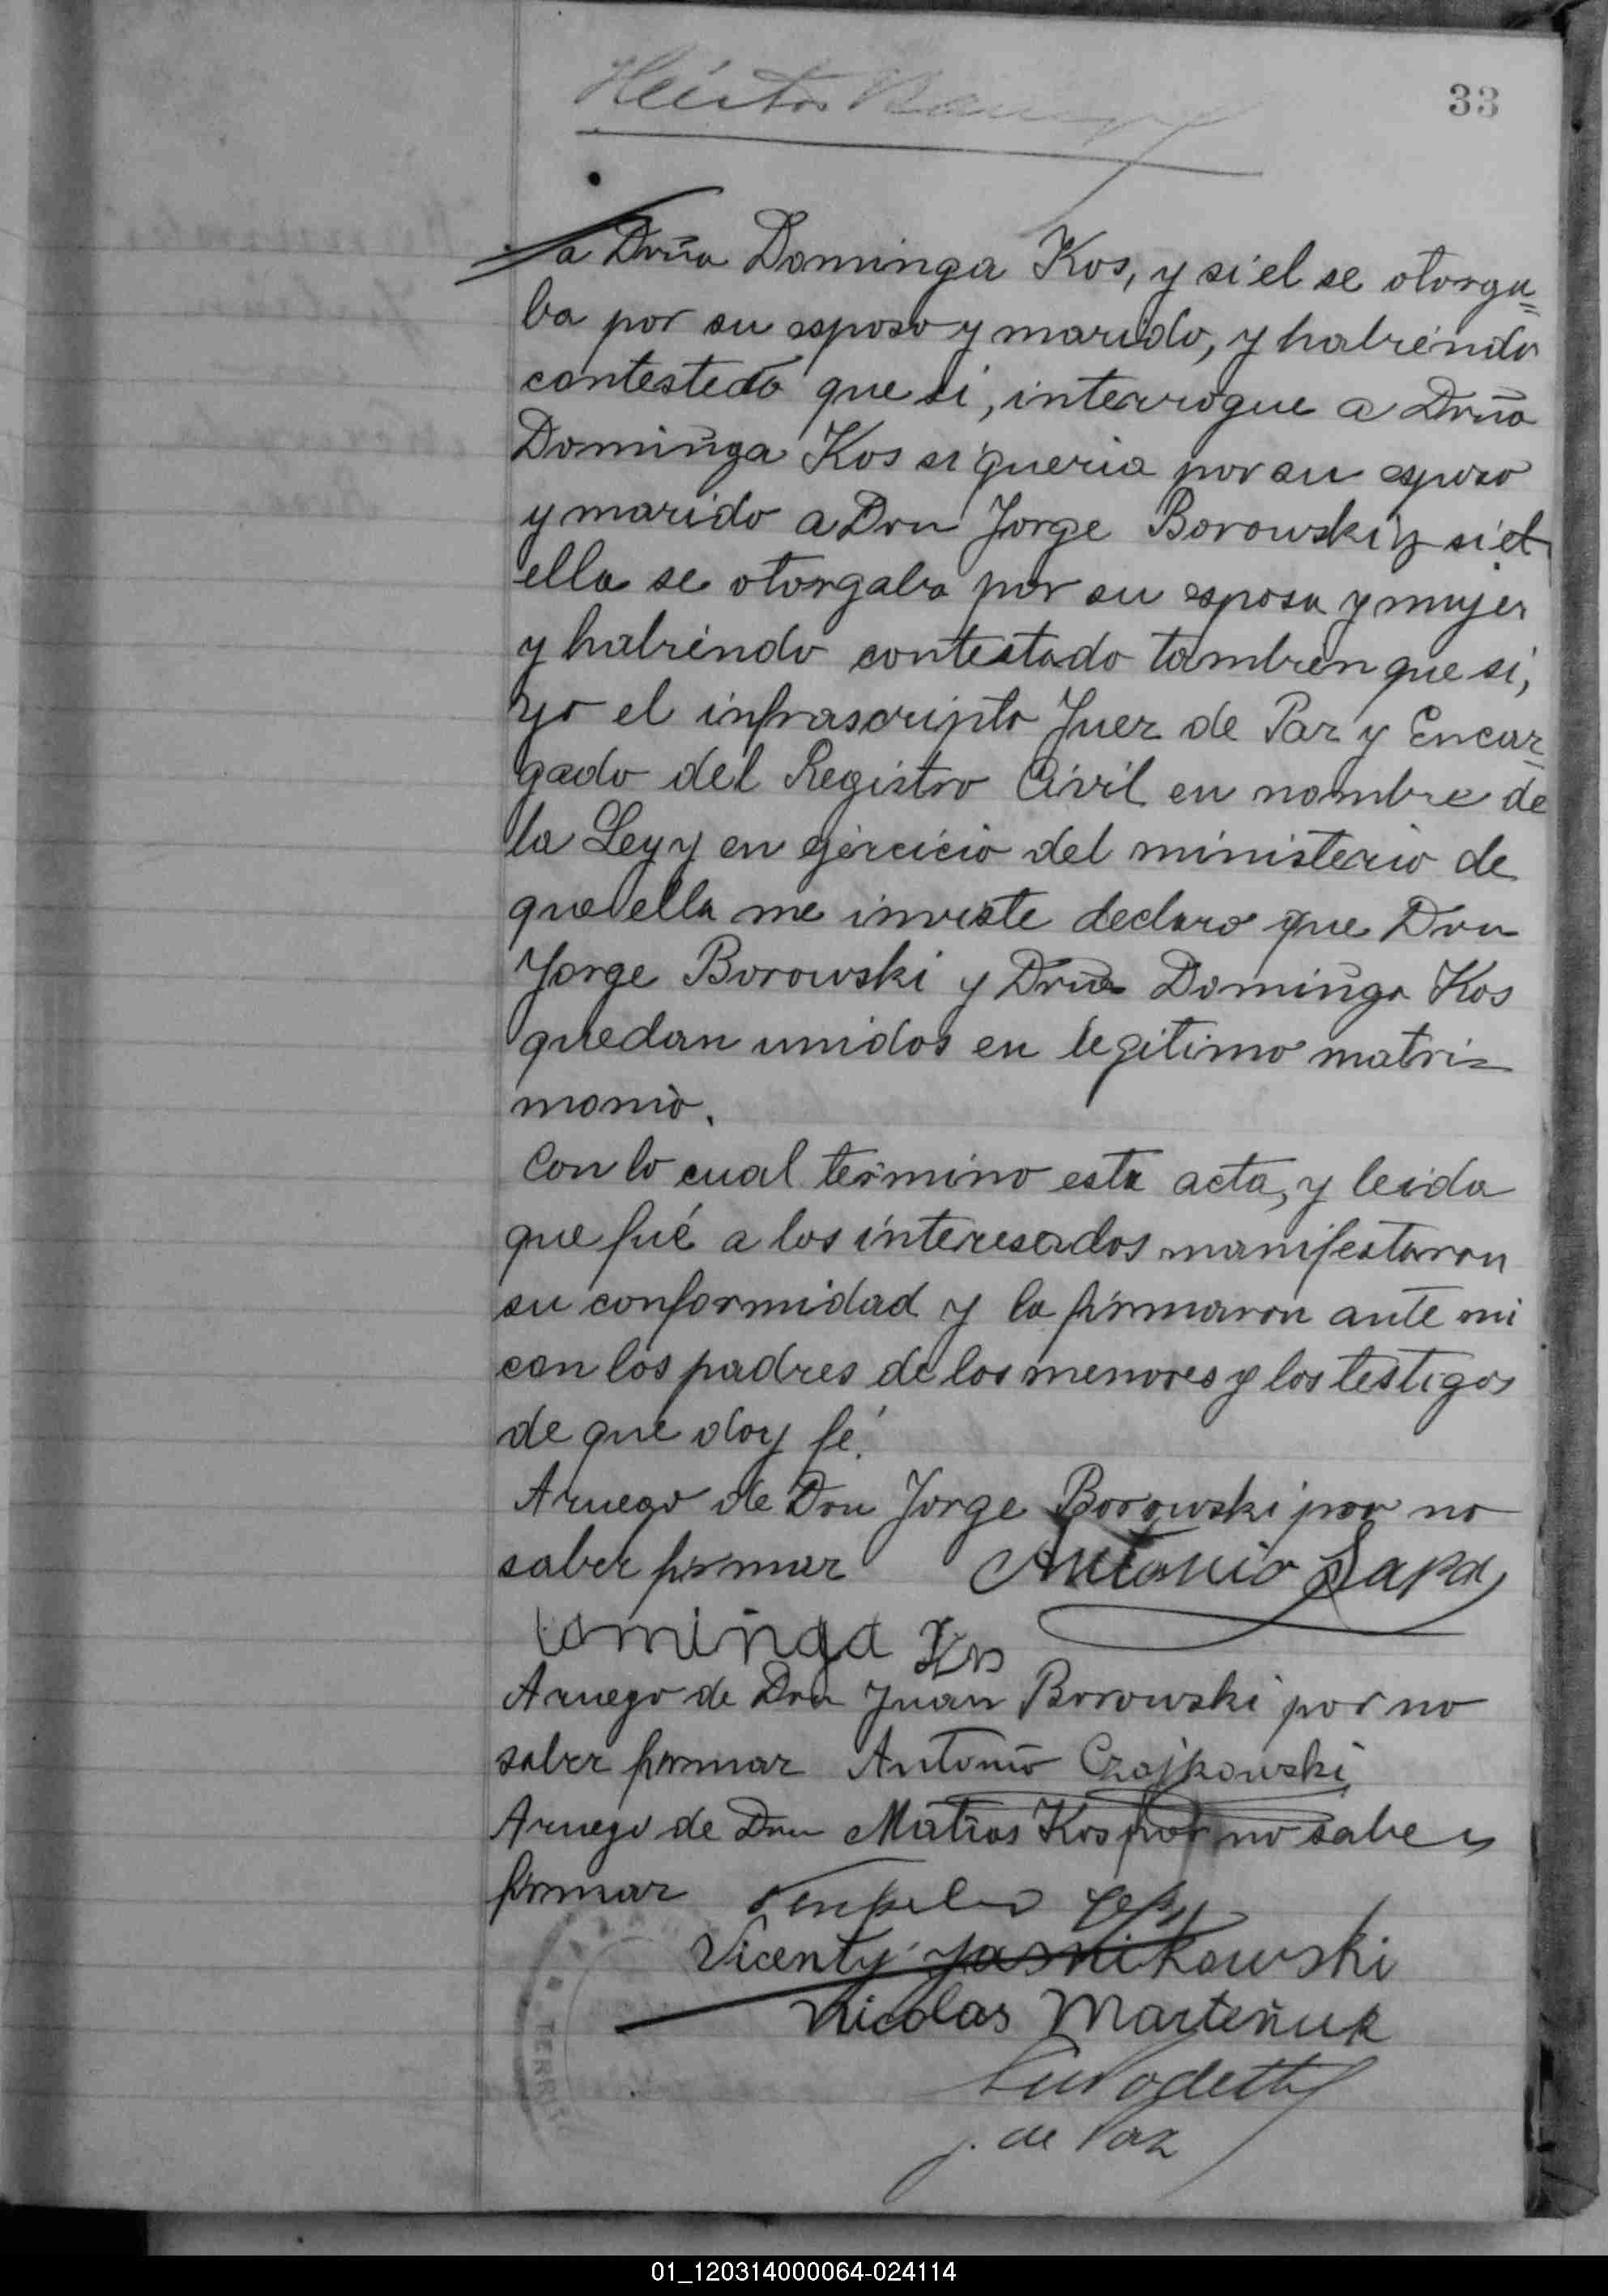 Héctor
33
a Doña Dominga Kos, y si el se otorga=
ba por su esposo y marido, y habiendo
contestado que si, interrogue a Doña
Dominga Kos si queria por su esposo
y marido a Don Jorge Borowski y si el
ella se otorgaba por su esposa y mujer
y habiendo contestado tambien que si,
yo el infrascripto Juez de Paz y Encar=
gado del Registro Civil en nombre de
la Ley y en ejercicio del ministerio de
que ella me inviste declaro que Don
Jorge Borowski y Doña Dominga Kos
quedan unidos en legitimo matri=
monio.
Con lo cual termino esta acta, y leida
que fué a los interesados manifestaron
su conformidad y la firmaron ante mi
con los padres de los menores y los testigos
de que doy fé.
A ruego de Don Jorge Borowski por no
saber firmar Antonio Sapa
Dominga Kos
A ruego de Don Juan Borowski por no
saber firmar Antonio Czajkowski
A ruego de Don Matias Kos por no saber
firmar
Vicenty Jasnikowski
Nicolas Marteñuk
J. de Paz
TERRIT
01_120314000064-024114